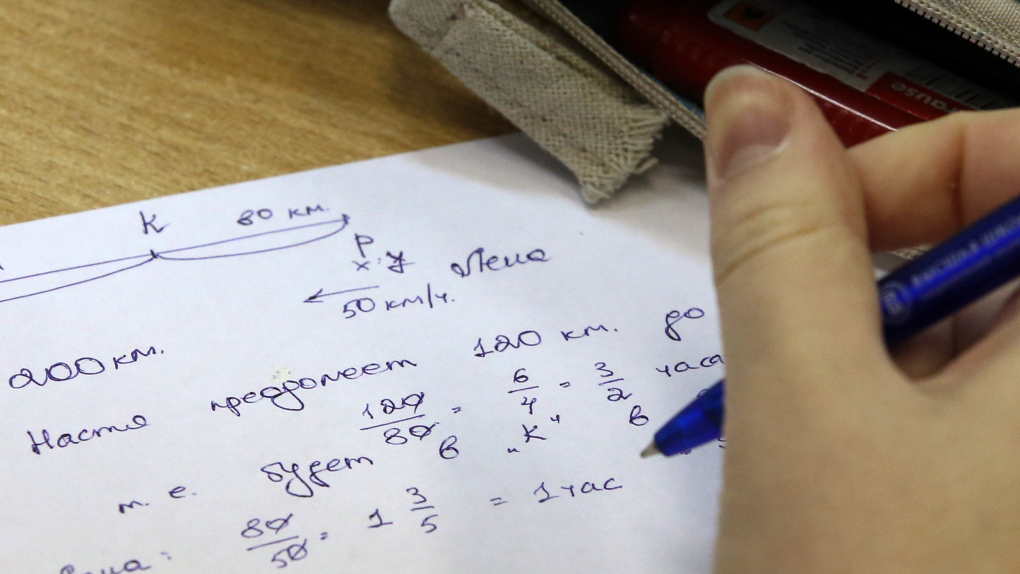 K 80 км.
P
x y Лена
50 км/ч.
200 км.
Настя преодолеет 120 км. до
120/80 = 6/4 = 3/2 часа
т. е. будет в "K" в
80/50 = 1 3/5 = 1 час
rause